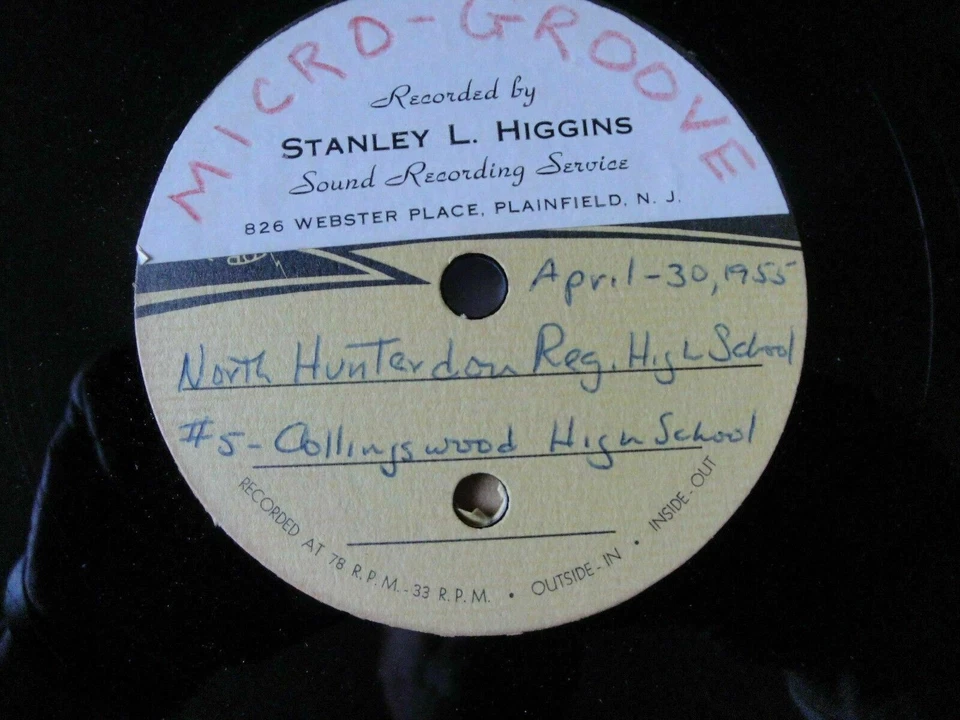 MICRO-GROOVE
Recorded by
STANLEY L. HIGGINS
Sound Recording Service
826 WEBSTER PLACE, PLAINFIELD, N. J.
April-30, 1955
North Hunterdon Reg. High School
#5- Collingswood High School
RECORDED AT 78 R.P.M. - 33 R.P.M. • OUTSIDE-IN • INSIDE-OUT